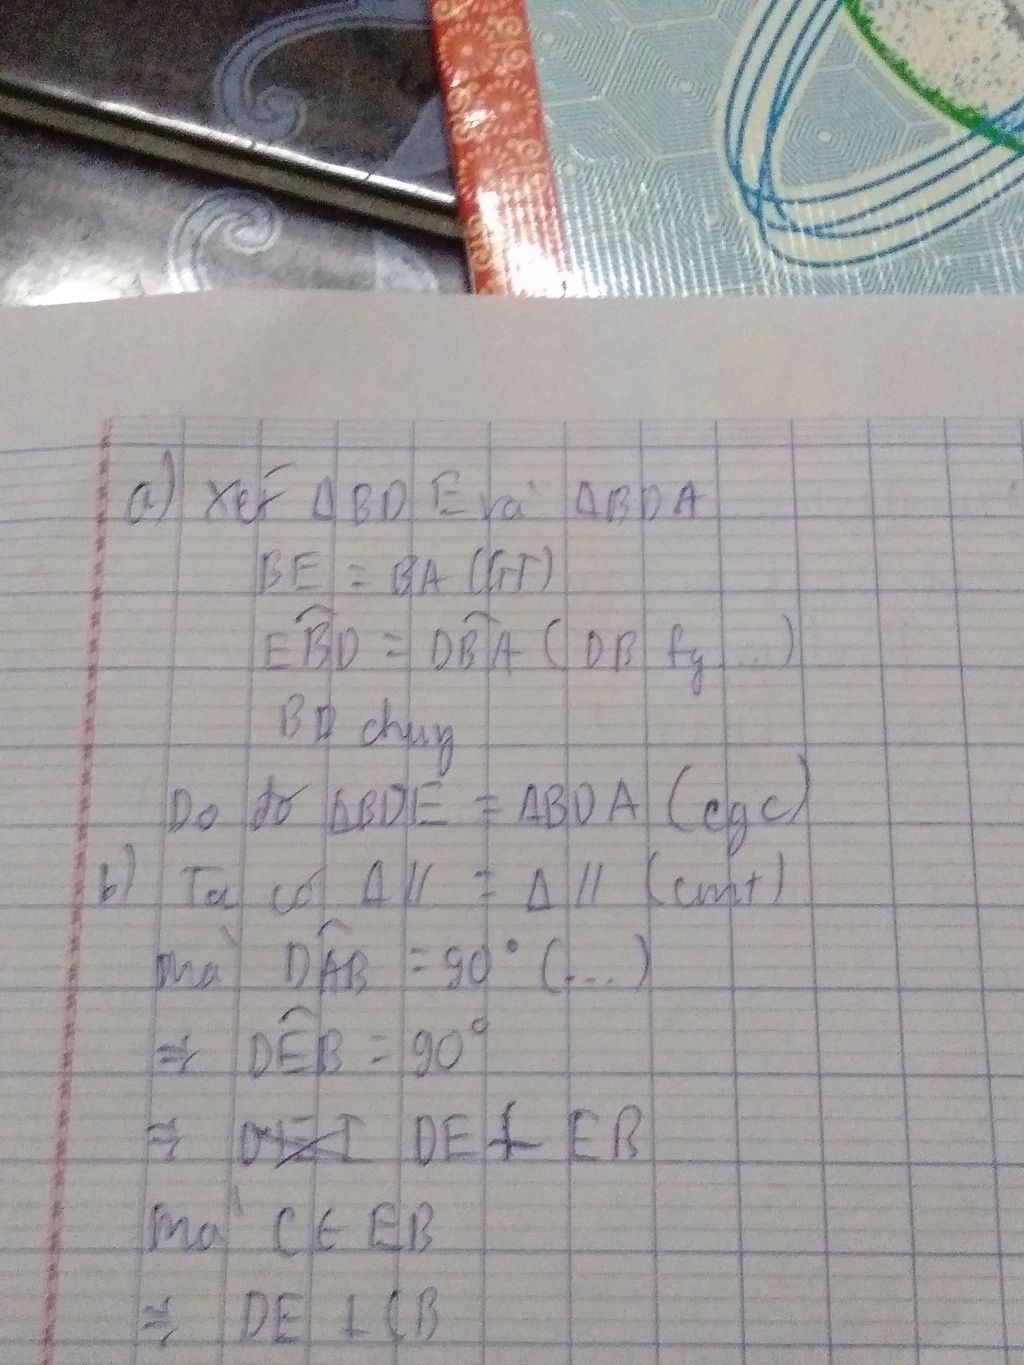 a) Xét ΔBDE và ΔBDA
BE = BA (GT)
EB̂D = DB̂A (DB fg ...)
BD chung
Do đó ΔBDE = ΔBDA (cgc)
b) Ta có Δ// = Δ// (cmt)
mà DÂB = 90° (...)
=> DÊB = 90°
=> DE ⊥ EB
mà C ∈ EB
=> DE ⊥ CB